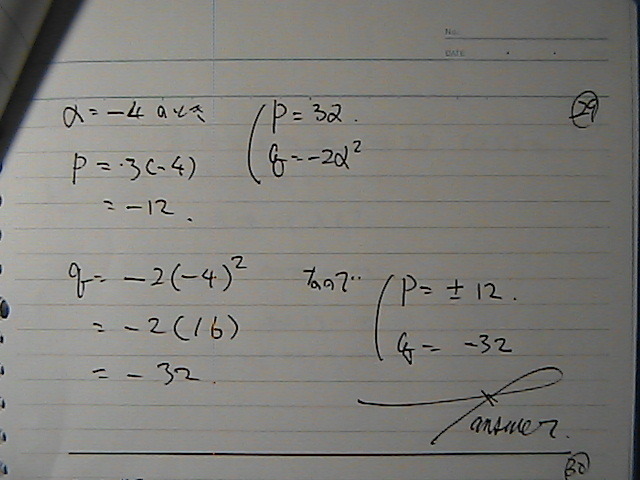 No.
DATE
㉙
α = -4 のとき
p = 3α.
q = -2α²
p = 3(-4)
= -12.
q = -2(-4)²
= -2(16)
= -32.
なので
p = ±12.
q = -32
answer.
㉚